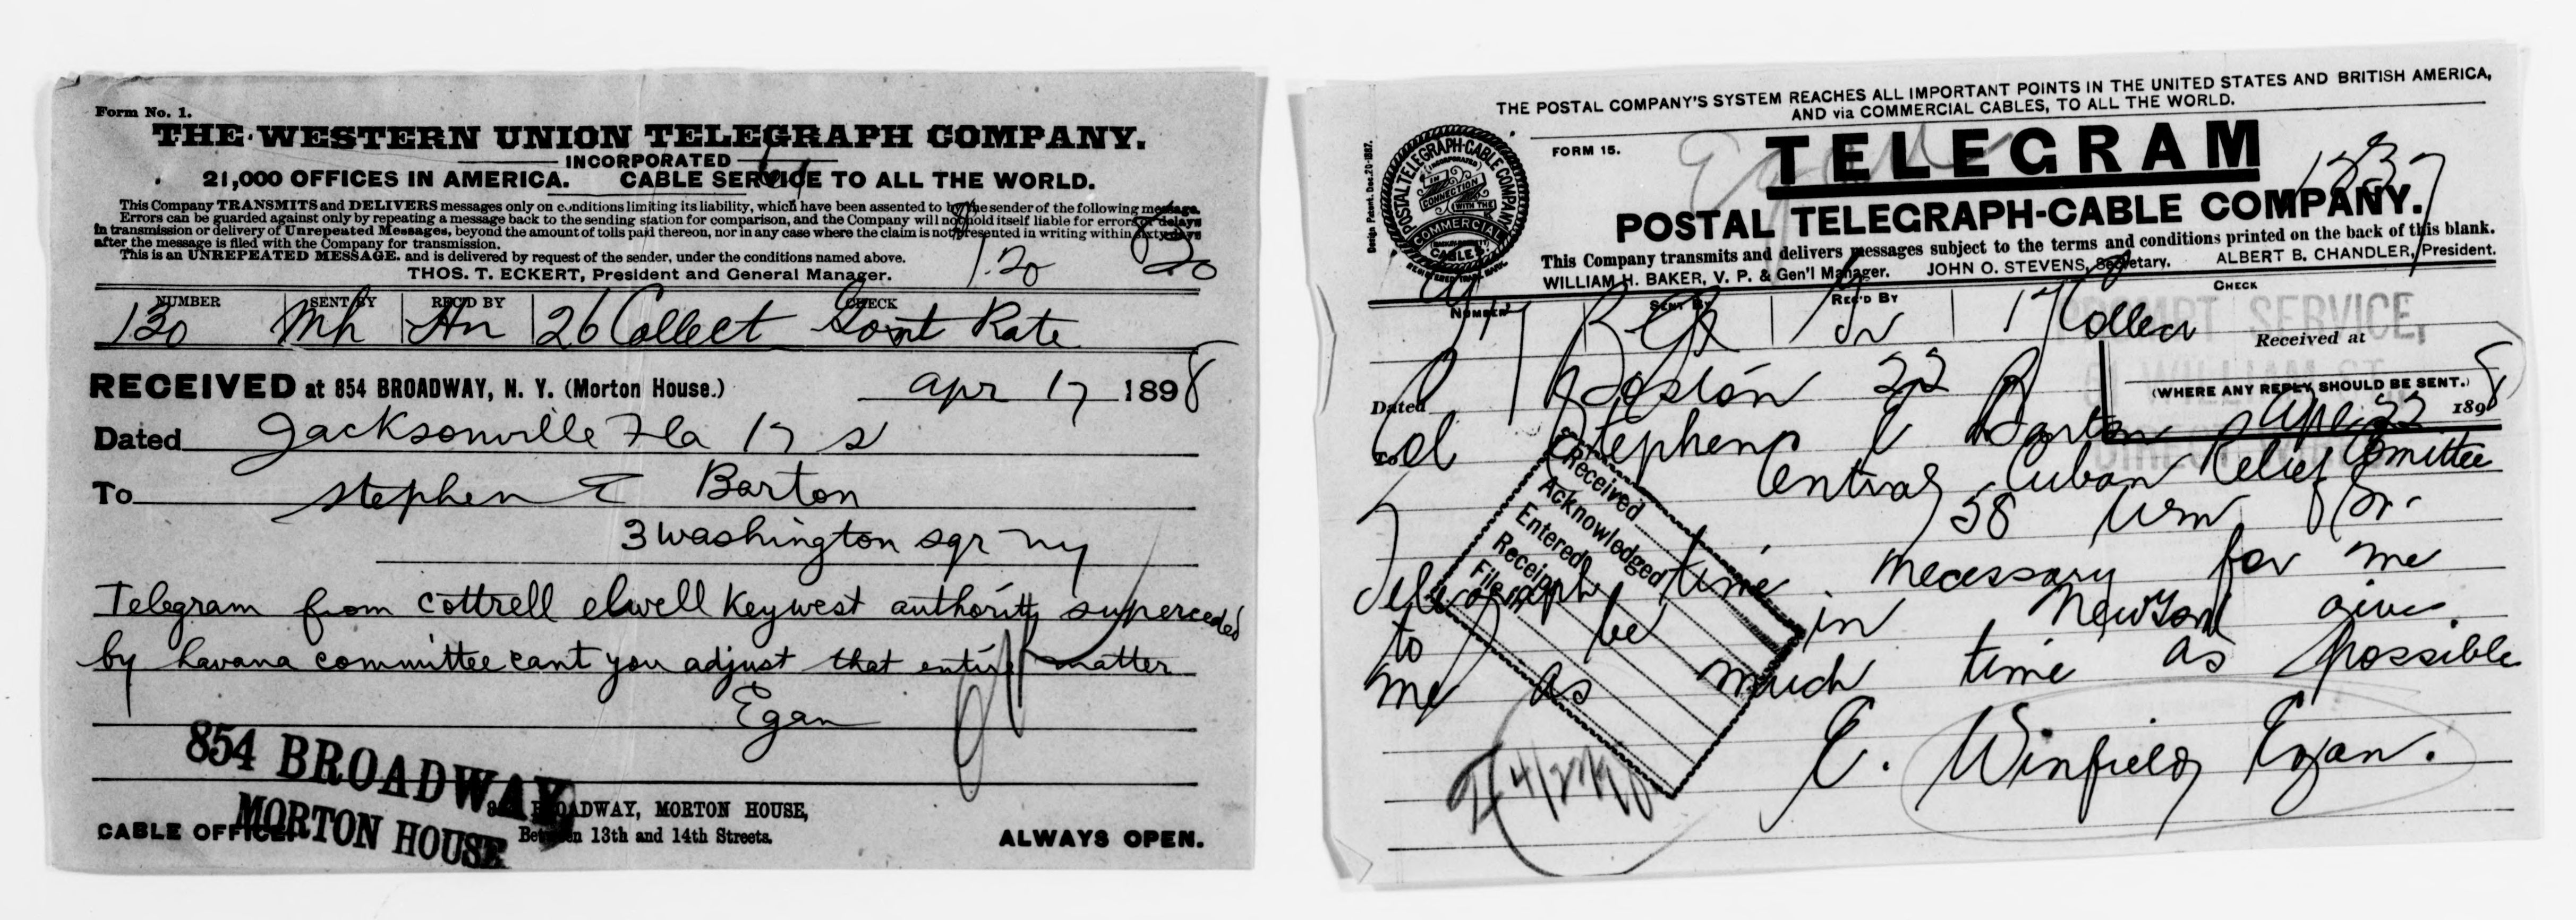 Form No. 1.
THE WESTERN UNION TELEGRAPH COMPANY.
INCORPORATED
21,000 OFFICES IN AMERICA. CABLE SERVICE TO ALL THE WORLD.
This Company TRANSMITS and DELIVERS messages only on conditions limiting its liability, which have been assented to by the sender of the following message.
Errors can be guarded against only by repeating a message back to the sending station for comparison, and the Company will not hold itself liable for errors or delays
in transmission or delivery of Unrepeated Messages, beyond the amount of tolls paid thereon, nor in any case where the claim is not presented in writing within sixty days
after the message is filed with the Company for transmission.
This is an UNREPEATED MESSAGE, and is delivered by request of the sender, under the conditions named above.
THOS. T. ECKERT, President and General Manager.
1.20
NUMBER SENT BY REC'D BY CHECK
130 Mh Hn 26 Collect Govt Rate
RECEIVED at 854 BROADWAY, N. Y. (Morton House.) apr 17 1898
Dated Jacksonville Fla 17 s
To Stephen E Barton
3 Washington sqr ny
Telegram from cottrell elwell Keywest authority superceded
by havana committee cant you adjust that entire matter
Egan
854 BROADWAY
MORTON HOUSE
BROADWAY, MORTON HOUSE,
CABLE OFFICE
Between 13th and 14th Streets.
ALWAYS OPEN.
THE POSTAL COMPANY'S SYSTEM REACHES ALL IMPORTANT POINTS IN THE UNITED STATES AND BRITISH AMERICA,
AND via COMMERCIAL CABLES, TO ALL THE WORLD.
Design Patent. Dec. 20-1887.
POSTAL TELEGRAPH-CABLE COMPANY
INCORPORATED
IN CONNECTION WITH THE
COMMERCIAL
CABLE
FORM 15.
Egan
TELEGRAM
1837
POSTAL TELEGRAPH-CABLE COMPANY.
This Company transmits and delivers messages subject to the terms and conditions printed on the back of this blank.
WILLIAM H. BAKER, V. P. & Gen'l Manager. JOHN O. STEVENS, Secretary. ALBERT B. CHANDLER, President.
NUMBER SENT BY REC'D BY CHECK
17 Collect
PROMPT SERVICE,
WILLIAM ST.
Received at
(WHERE ANY REPLY SHOULD BE SENT.)
Dated Boston 22
Apr 22 1898
To Col Stephen E Barton
Central Cuban Relief Comittee
58 Wm St.
Telegraph time necessary for me
to be in New York give
me as much time as possible
E. Winfield Egan.
Received
Acknowledged
Entered
Receipt
File